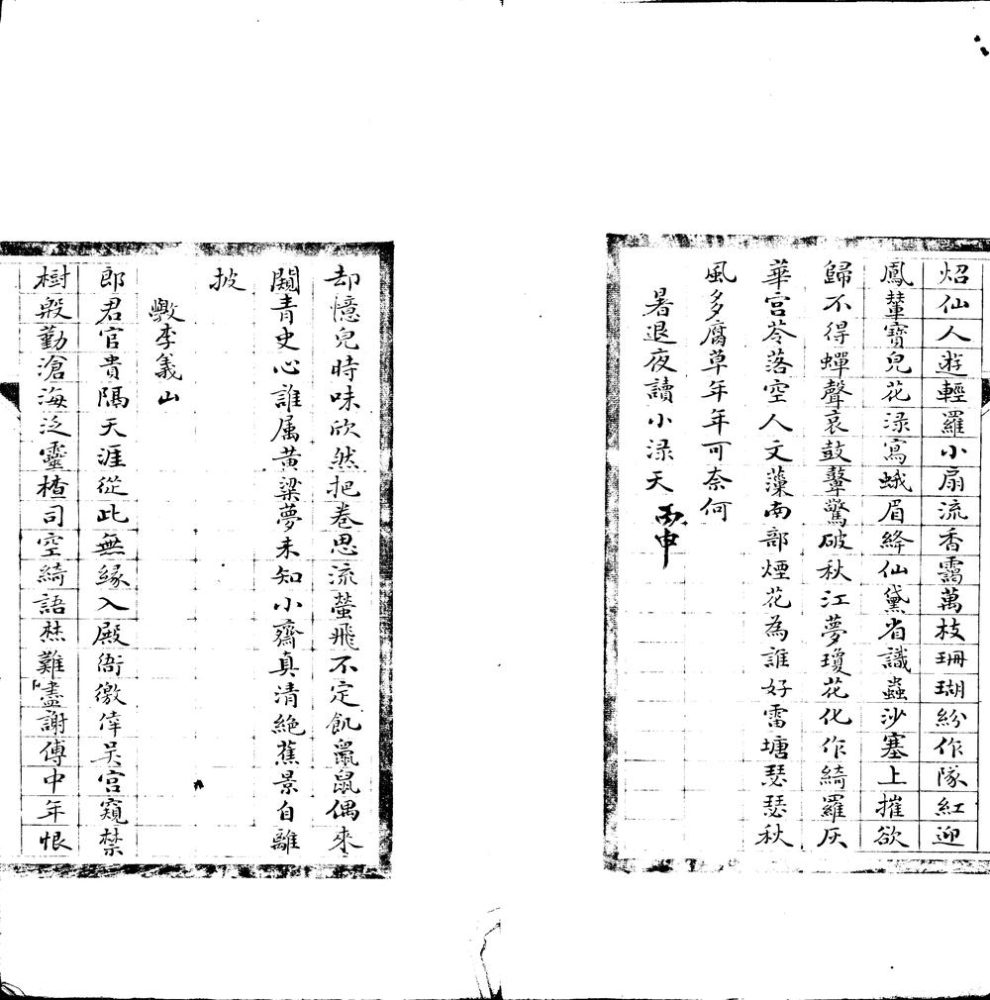 炤仙人遊輕羅小扇流香靄萬枝珊瑚紛作隊紅迎
鳳輦寶兒花淥寫蛾眉絳仙黛省識蟲沙塞上摧欲
歸不得蟬聲哀鼓鼙驚破秋江夢瓊花化作綺羅灰
華宮苓落空人文藻南部煙花為誰好雷塘瑟瑟秋
風多腐草年年可奈何
暑退夜讀小淥天 丙申
却憶兒時味欣然把卷思流螢飛不定飢鼠偶來
闚青史心誰属黄粱夢未知小齋真清絶蕉景自離
披
李義山
郎君官貴隔天涯從此無緣入殿衙徼倖吴宮窺禁
樹殷勤滄海泛靈楂司空綺語焚難盡謝傅中年恨